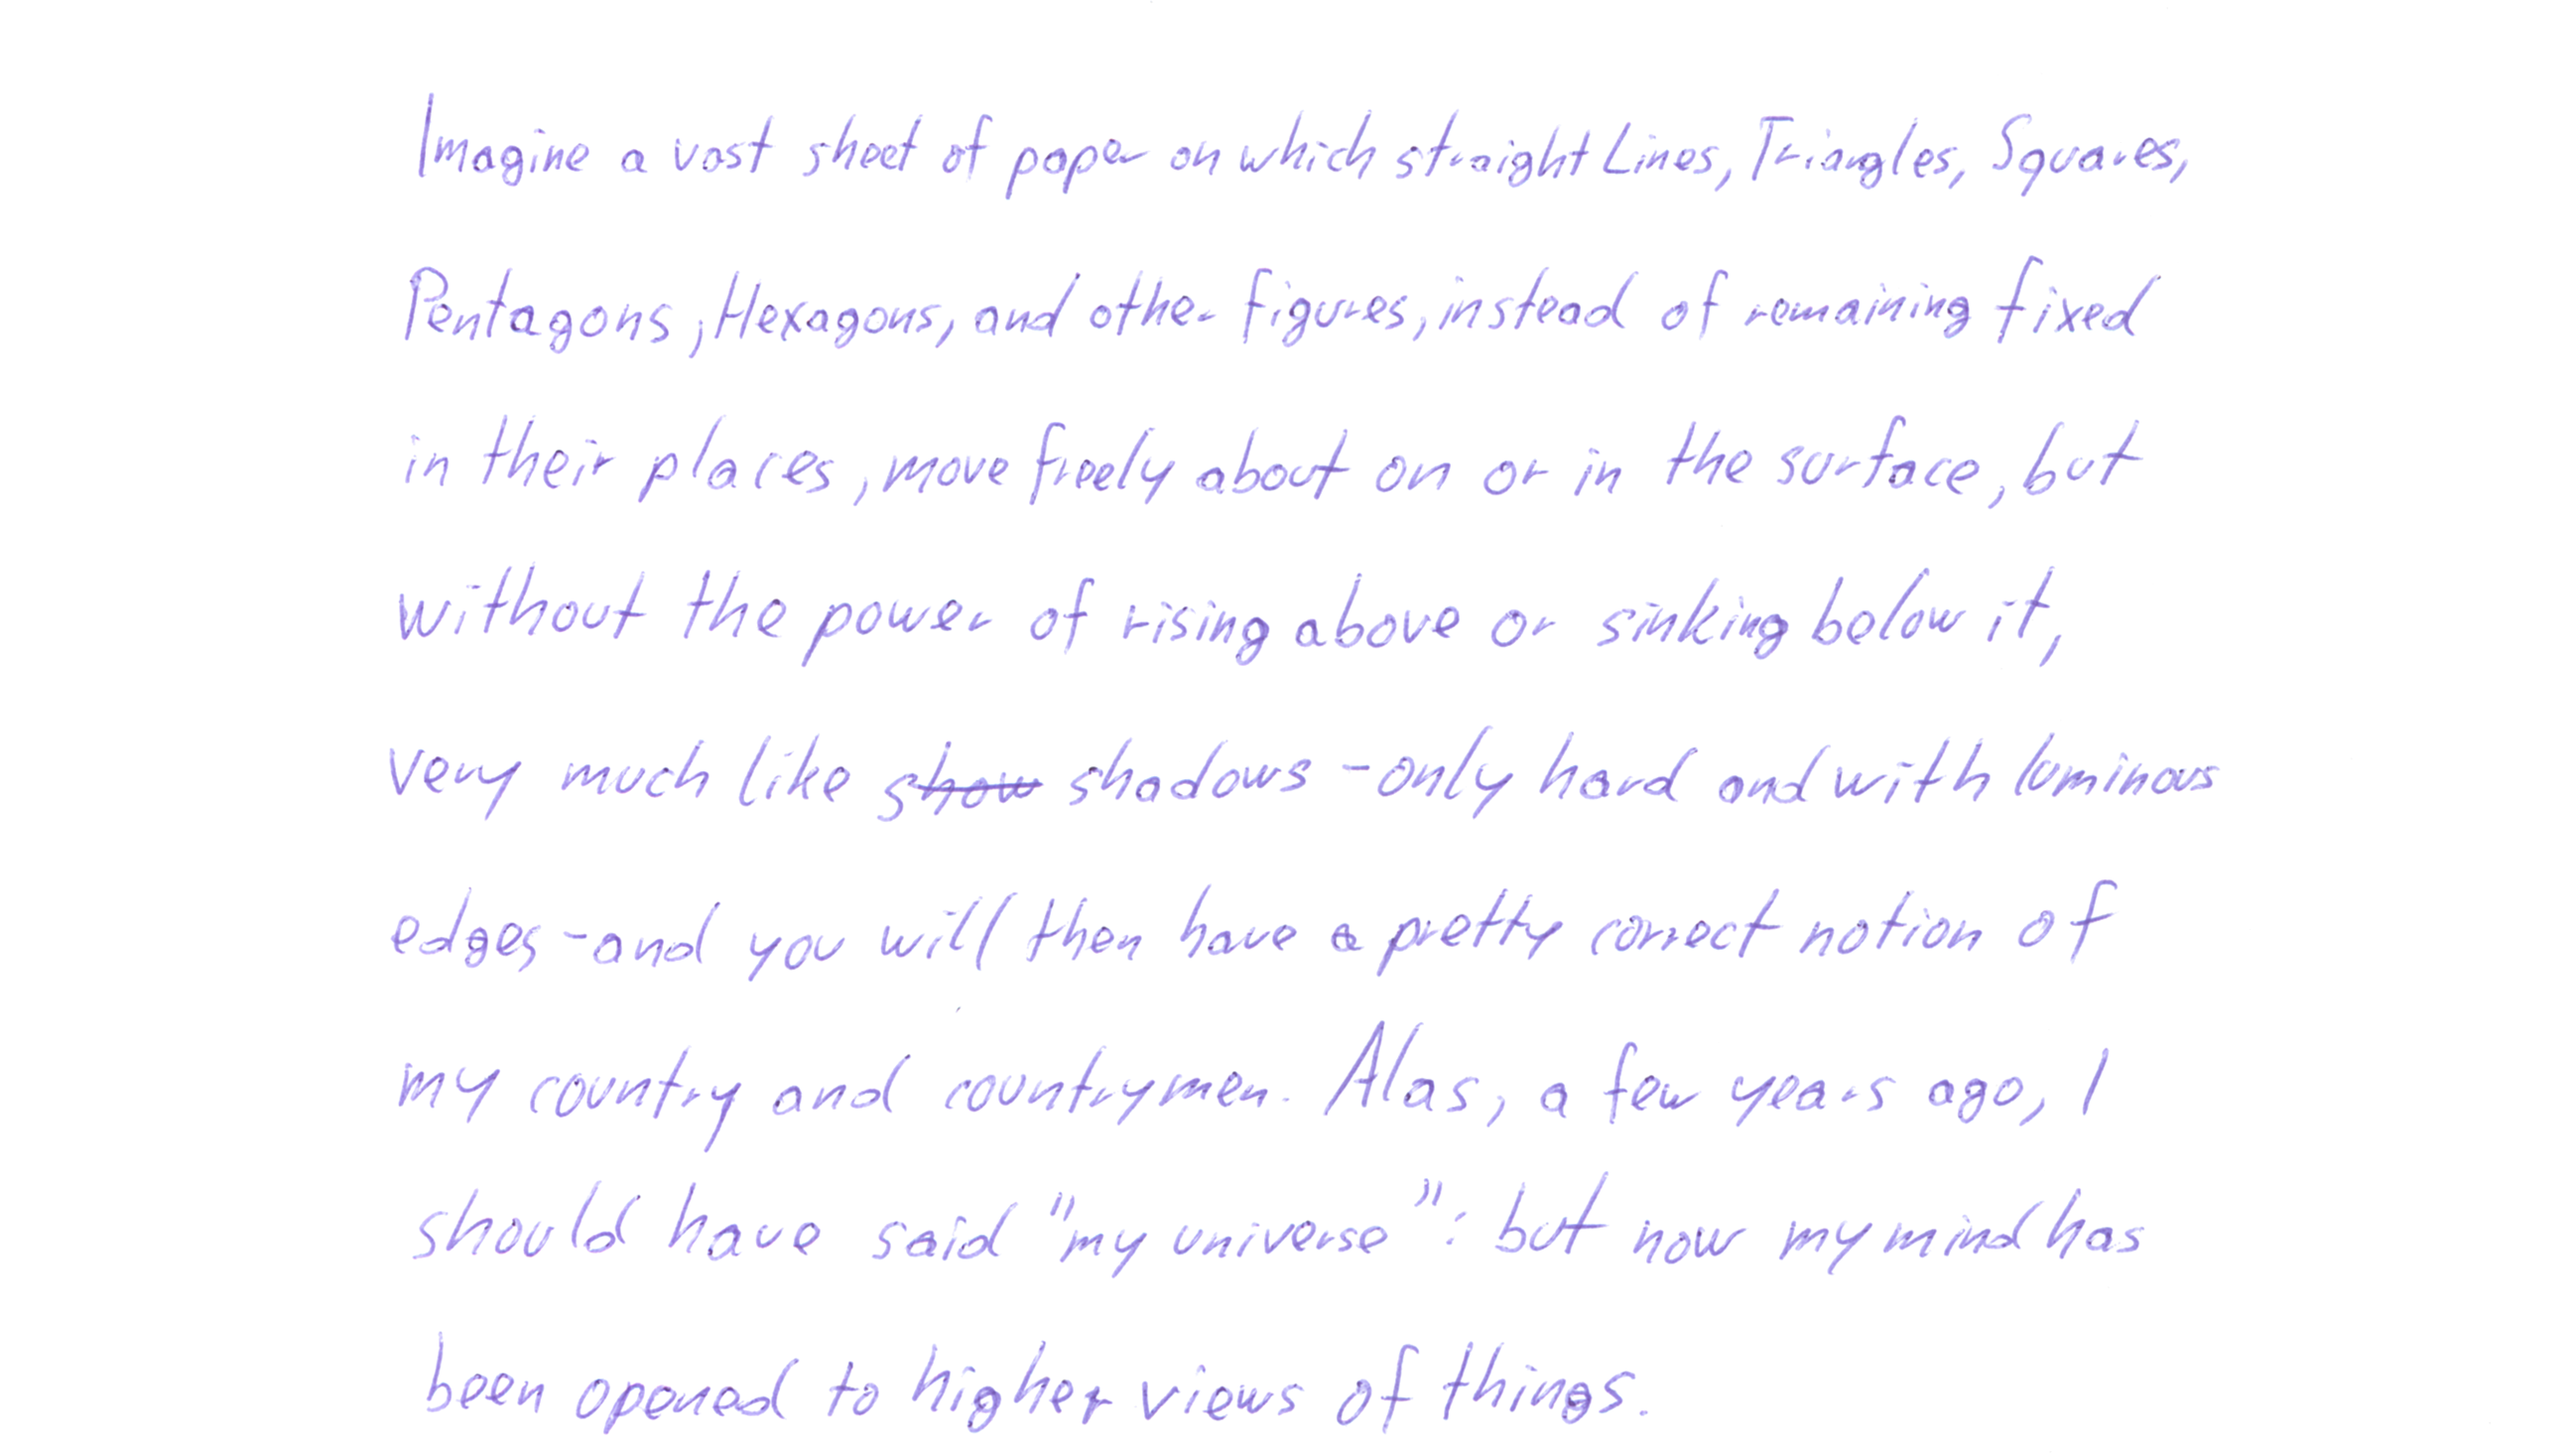 Imagine a vast sheet of paper on which straight Lines, Triangles, Squares,
Pentagons, Hexagons, and other figures, instead of remaining fixed
in their places, move freely about on or in the surface, but
without the power of rising above or sinking below it,
very much like show shadows - only hard and with luminous
edges - and you will then have a pretty correct notion of
my country and countrymen. Alas, a few years ago, I
should have said "my universe": but now my mind has
been opened to higher views of things.